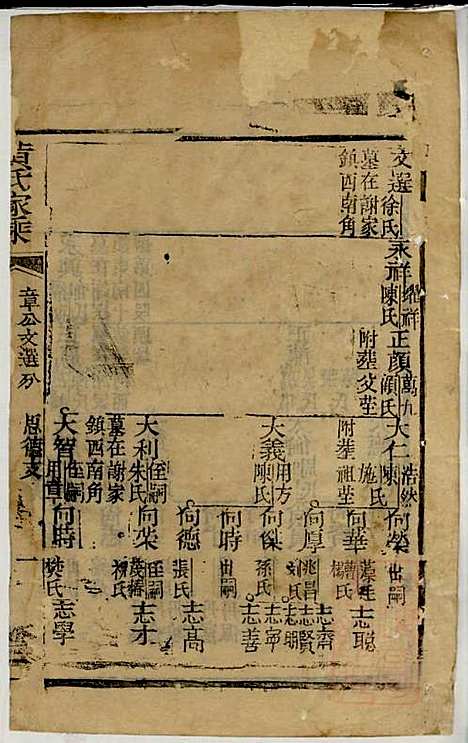 文選徐氏
墓在謝家
鎮西南角
永祥繼祥
陳氏
正顏萬九
顧氏
附塟父塋
大仁浩然
陳氏
施氏
附塟祖塋
大義用方
陳氏
大利侄嗣
朱氏
墓在謝家
鎮西南角
大智侄嗣
用章
向榮出嗣
向華
曹氏
志聰
向厚兆昌
刘氏
志齊
志賢
志明
向傑
孫氏
志寧
志善
向時出嗣
向德張氏
志高
向榮侄嗣
柳氏
志才
向時
樊氏
志學
黄氏家乘
章公文選分
恩德支
卷
一